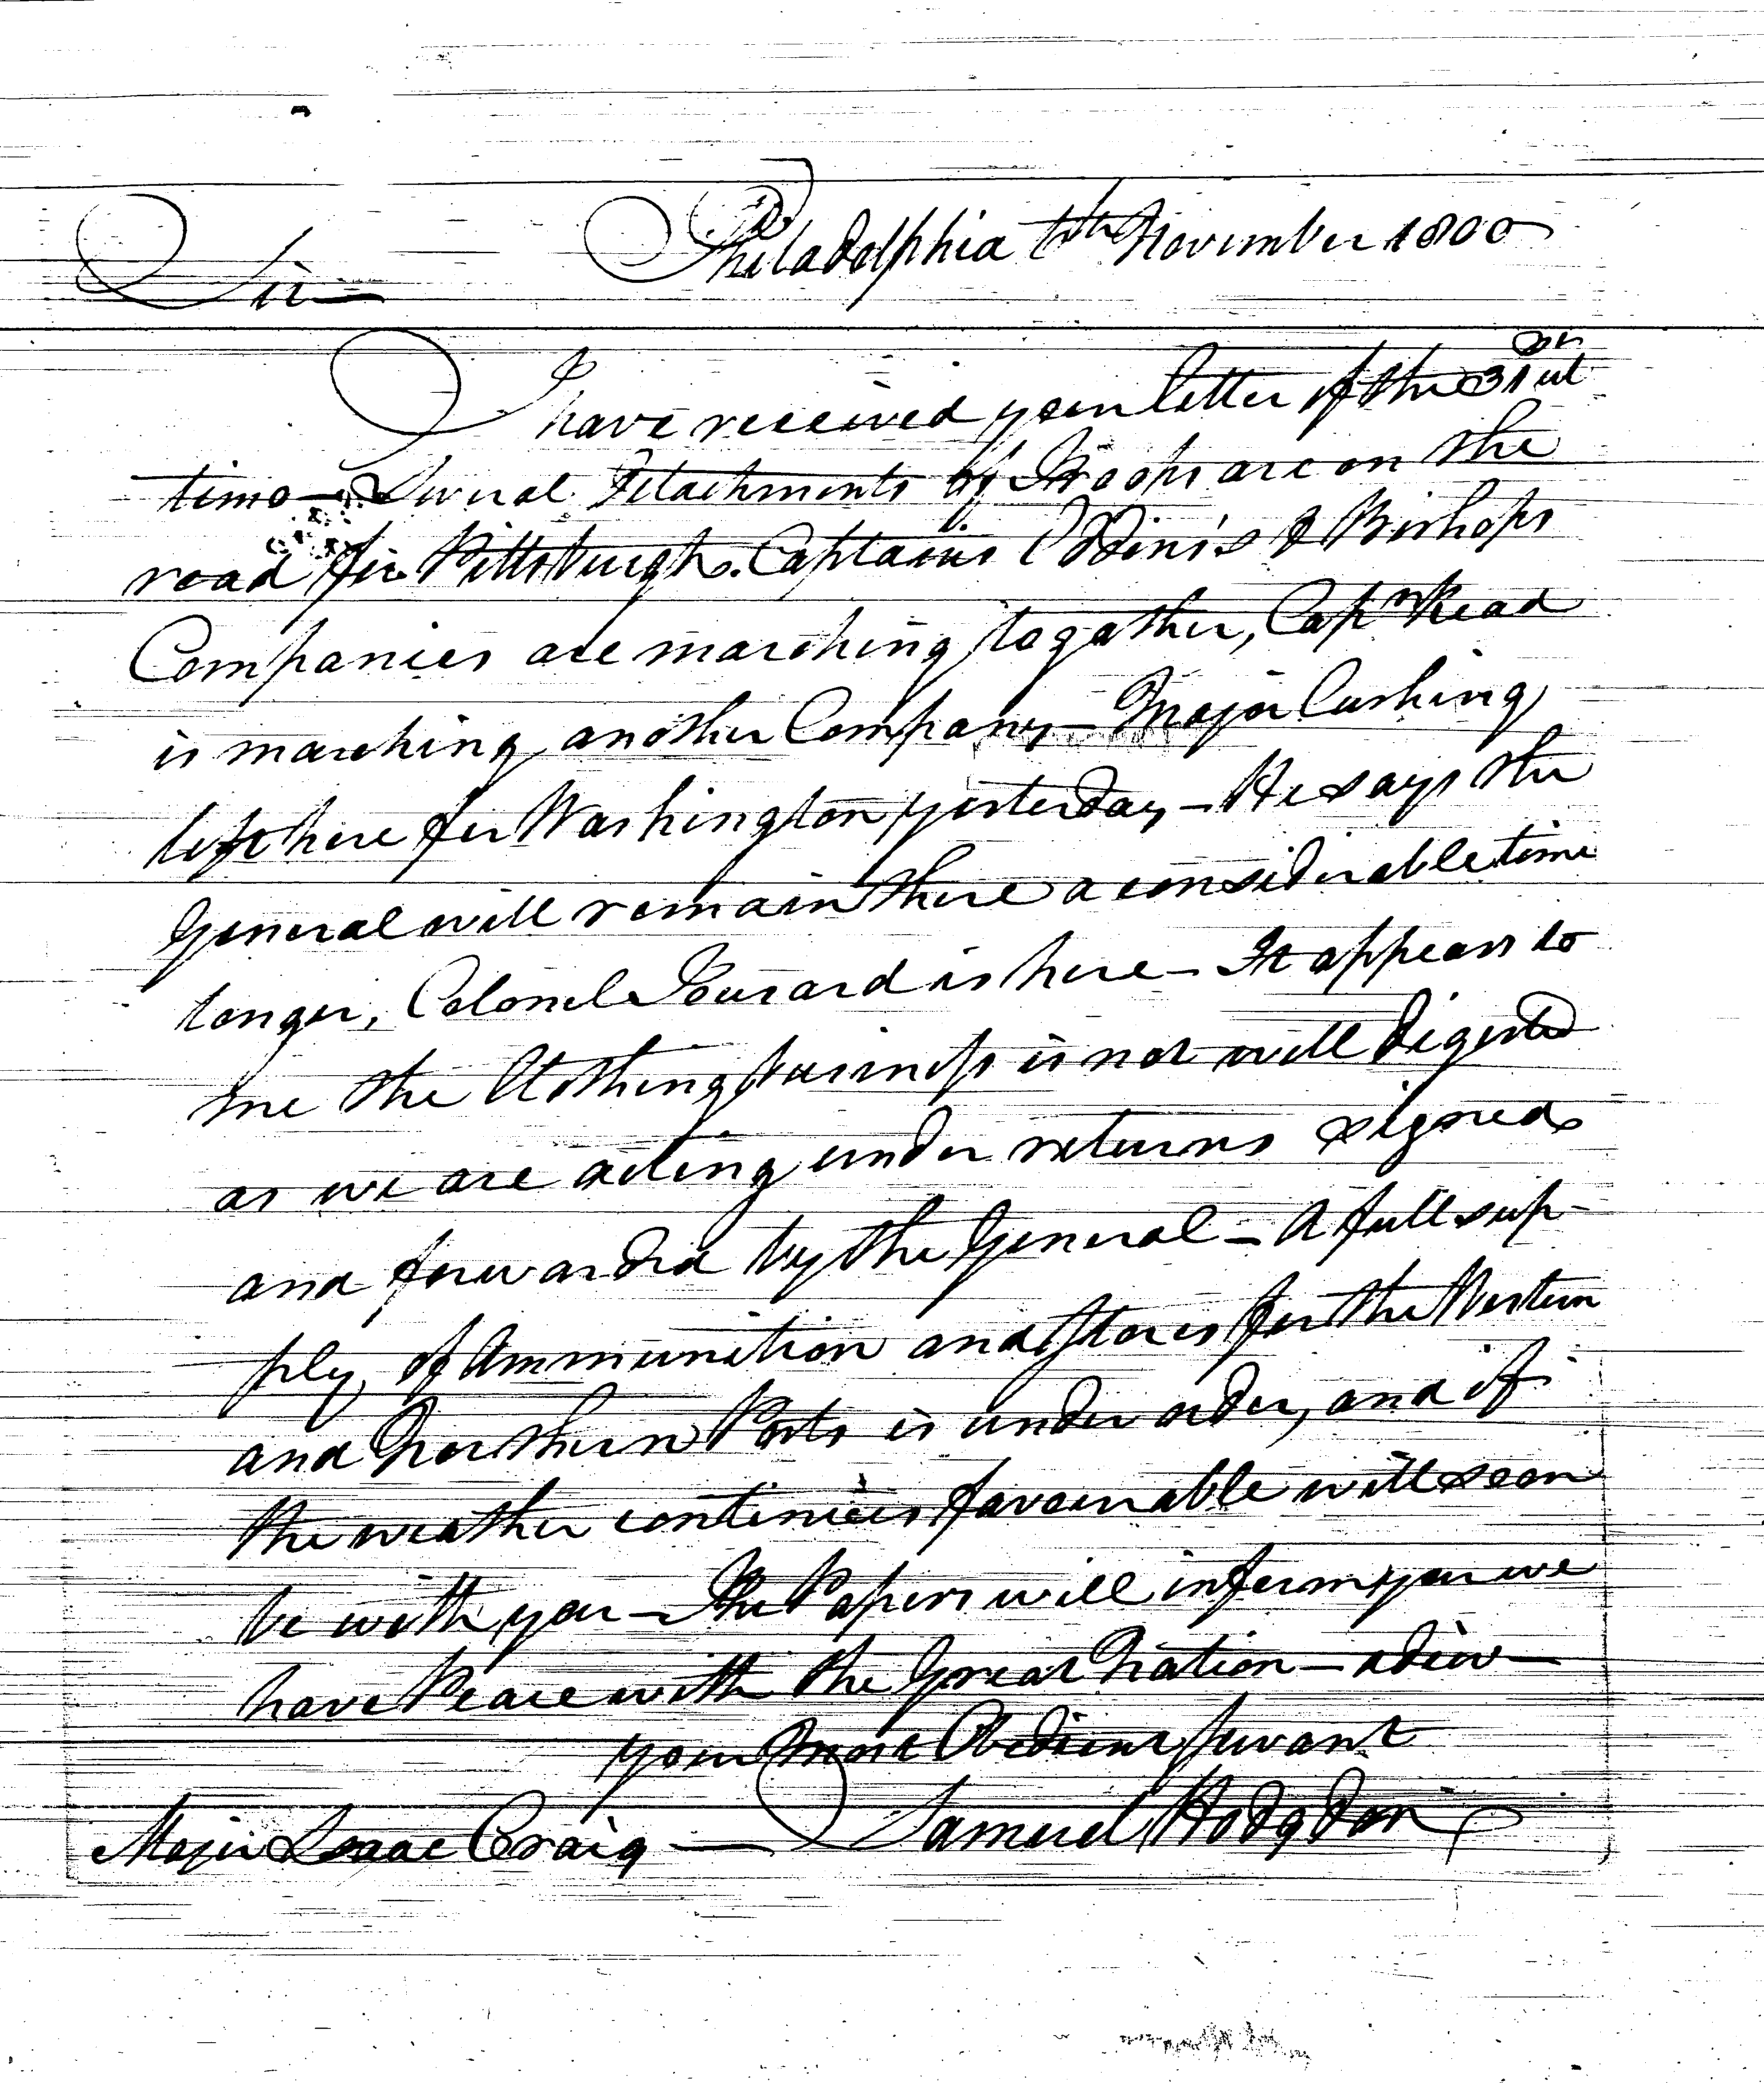 Philadelphia 6th November 1800
Sir
I have received your letter of the 31st ul
timo — Several Detachments of Troops are on the
road for Pittsburgh. Captains & Bishops
Companies are marching together, Capn Read
is marching another Company — Major Cushing
left here for Washington yesterday — He says the
General will remain there a considerable time
longer, Colonel is here — It appears to
me the Clothing business is not well digested
as we are acting under returns signed
and forwarded by the General — A full sup-
ply of Ammunition and Stores for the Western
and Northern Posts is under order, and if
the weather continues favourable will soon
be with you — The Papers will inform you we
have Peace with the Great Nation — adieu —
your Most Obedient Servant
Samuel Hodgdon
Major Isaac Craig —